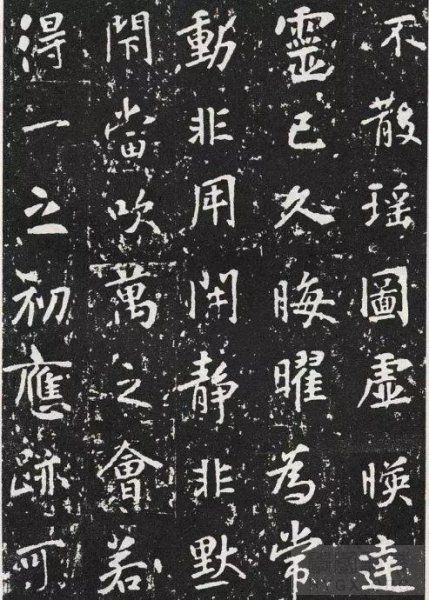 不散瑶圖虛暎達
靈已久晦曜為常
動非用開靜非默
閇當吹萬之會若
得一之初應跡可